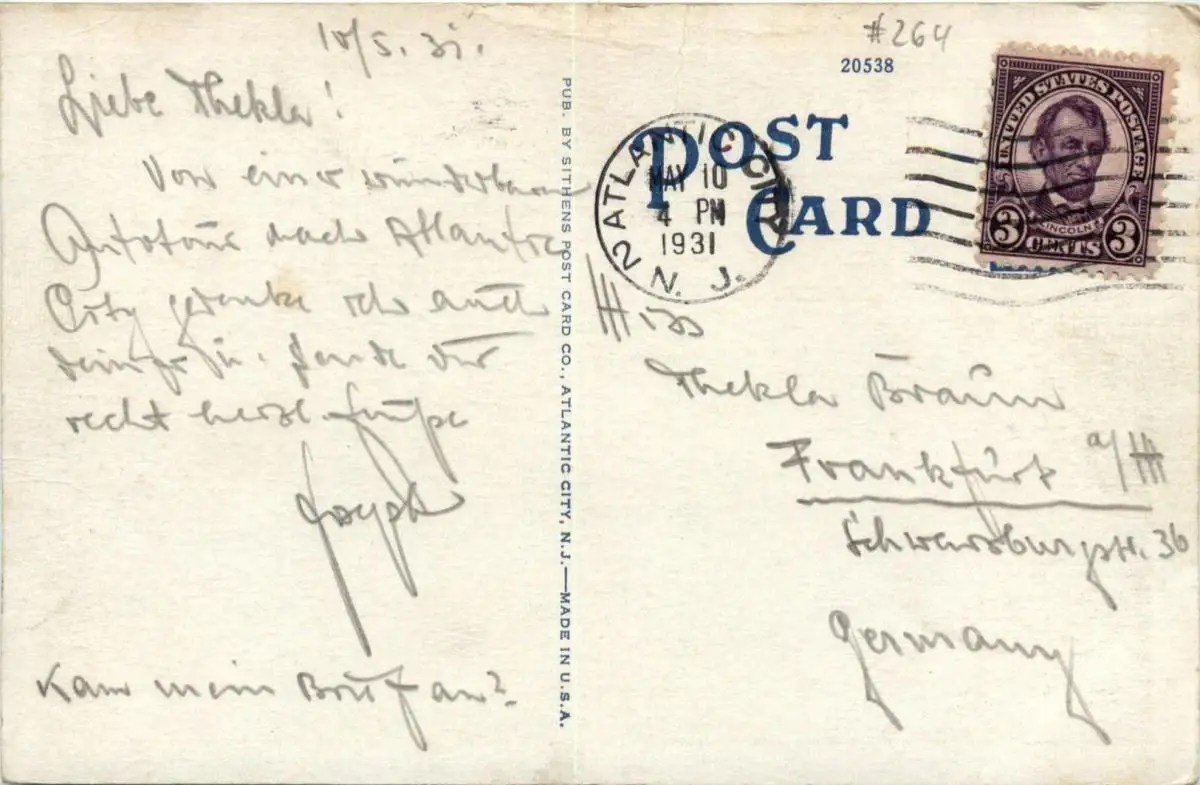 10/5. 31.
Liebe Thekla!
Von einer wunderbaren
Autotour nach Atlantic
City gedenke ich auch
deiner u. sende Dir
recht herzl. Grüße
Joseph
Kam mein Brief an?
PUB. BY SITHENS POST CARD CO., ATLANTIC CITY, N.J.—MADE IN U.S.A.
#264
20538
POST
CARD
ATLANTIC CITY
MAY 10
4 PM
1931
N. J.
2
UNITED STATES POSTAGE
LINCOLN
3 CENTS 3
Miss
Thekla Braun
Frankfurt a/M
Schwarzburgstr. 36
Germany